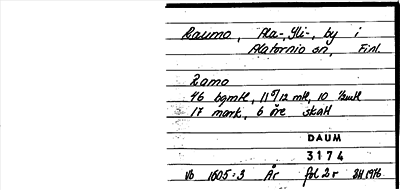 Raumo, Ala-, Yli-, by i
Alatornio sn, Finl.
Ramo
46 bgmtl, 11 9/12 mtl, 10 1/2mtl
17 mark, 6 öre skatt
DAUM
3174
Vb 1605:3 År fol 2 r SH 1976